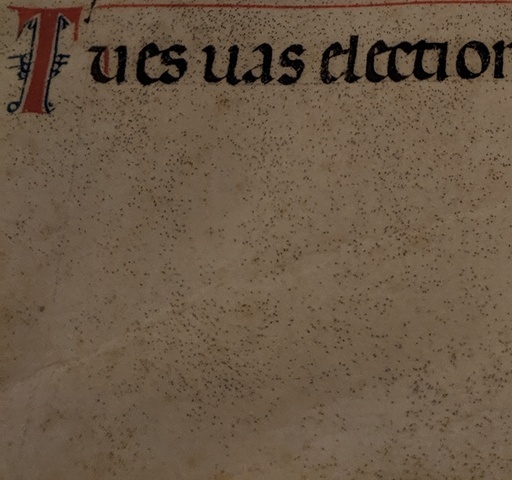 Tu es uas election